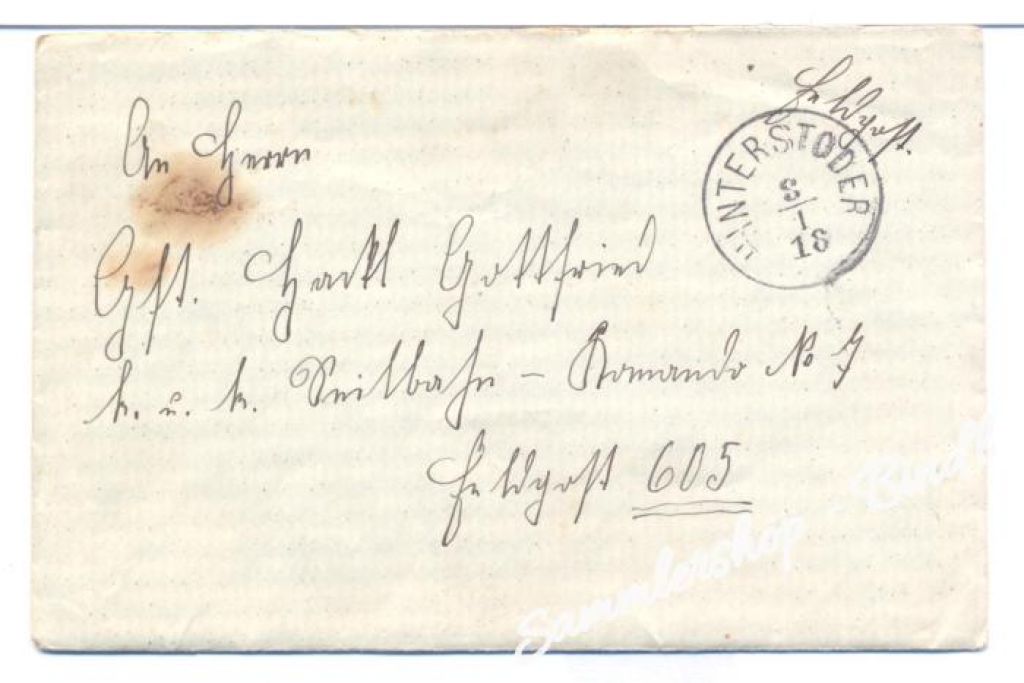 Feldpost.
HINTERSTODER
8/1
18
An Herrn
Gft. Hackl Gottfried
k. u. k. Seilbahn - Komando No 7
Feldpost 605
Sammlershop